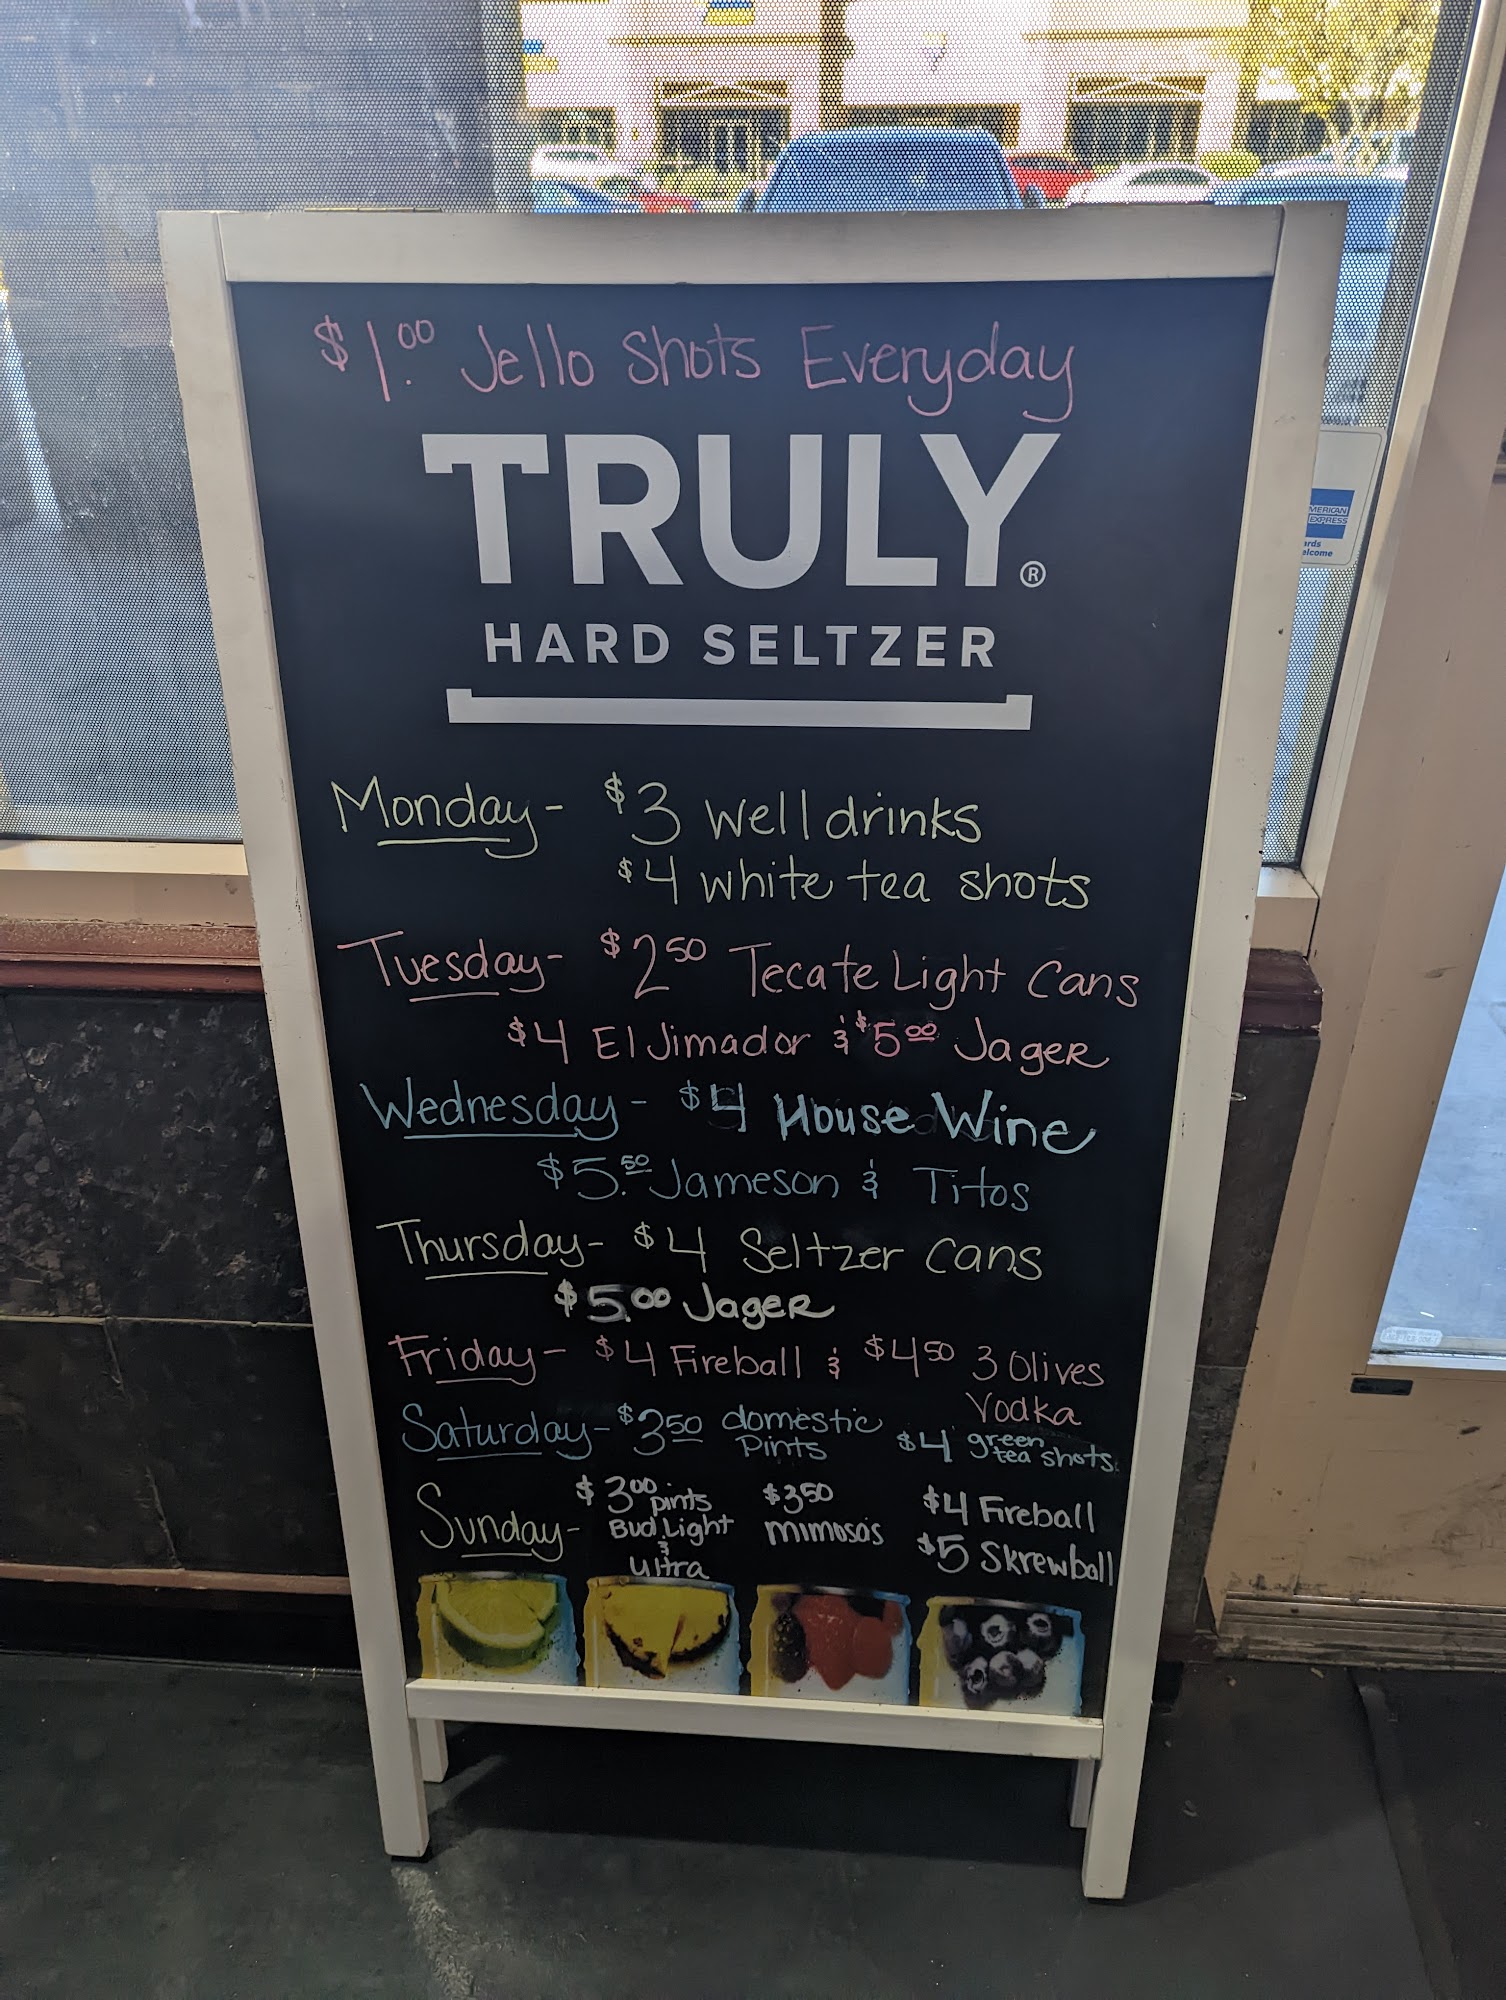 $1.00 Jello Shots Everyday
TRULY®
HARD SELTZER
Monday- $3 well drinks
$4 white tea shots
Tuesday- $2 50 Tecate Light Cans
$4 El Jimador & $5 00 Jager
Wednesday- $4 House Wine
$5.50 Jameson & Titos
Thursday- $4 Seltzer cans
$5.00 Jager
Friday- $4 Fireball & $4 50 3 Olives
Vodka
Saturday- $3 50 domestic
Pints
$4 green
tea shots
Sunday- $3 00 pints
Bud Light
&
Ultra
$3 50
mimosa's
$4 Fireball
$5 Skrewball
AMERICAN
EXPRESS